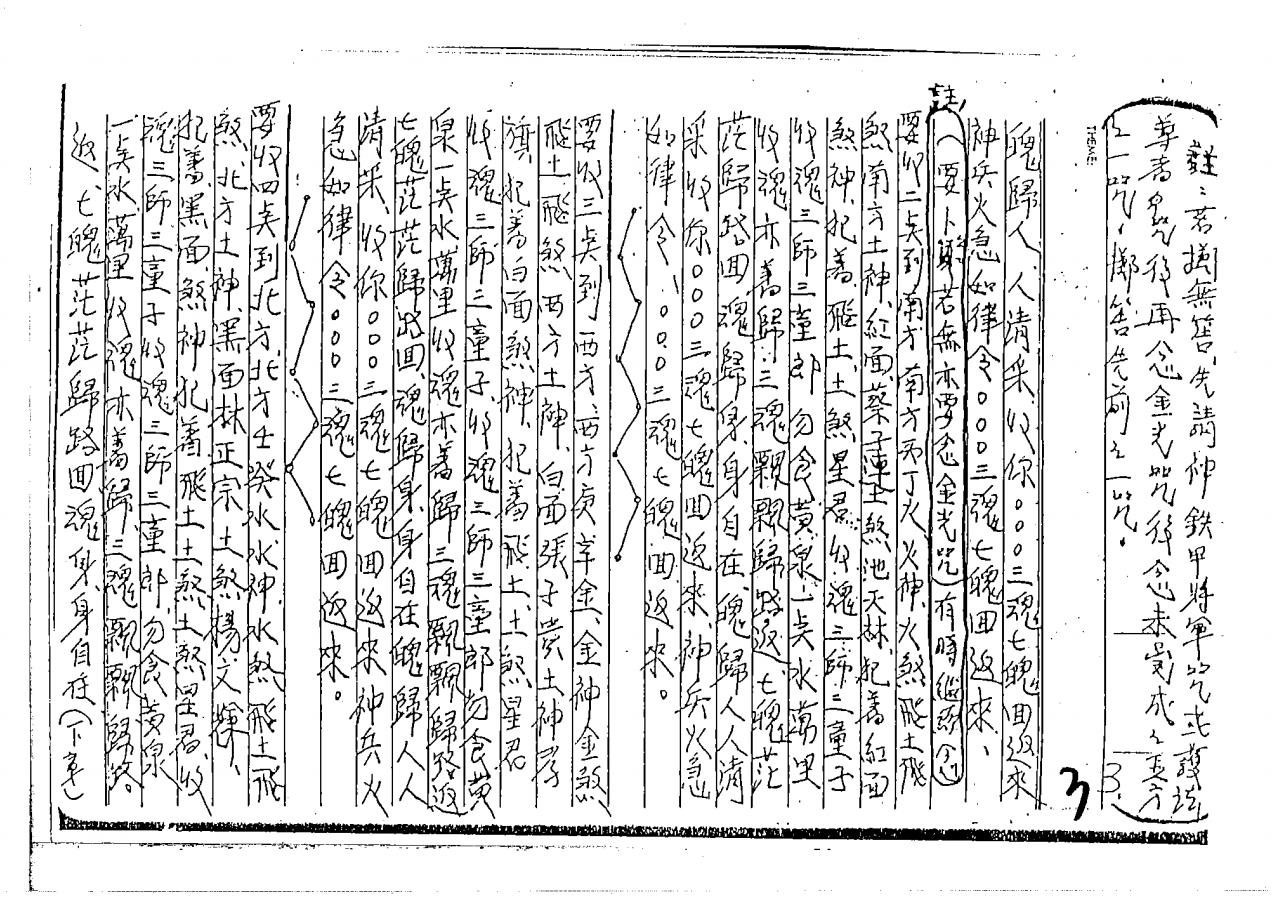 註:若擲無筶,先請神鉄甲將軍咒或護法
尊者咒後再念金光咒後念未完成之五方
之一咒,擲筶先前之一咒。
3.
3
魄歸人,人清采,收你ooo三魂七魄回返來
神兵火急如律令ooo三魂七魄回返來、
註
(要卜 若無亦要念金光咒)有時繼須念
要收二点到南方,南方丙丁火,火神,火煞飛土飛
煞,南方土神,紅面,蔡子 土煞,池天林,犯着紅面
煞神,犯着飛土,土煞,星君,收魂三師三童子
收魂三師三童郎勿食黃泉,一点水萬里
收魂亦着歸,三魂飄飄歸路返,七魄茫
茫歸路回魂歸身,身自在,魄歸人人清
采,收你ooo三魂七魄回返來,神兵火急
如律令、ooo三魂七魄回返來。
要收三点到西方,西方庚辛金,金神金煞
飛土飛煞,西方土神,白面張子貴土神李
旗,犯着白面煞神,犯着飛土,土煞,星君
收魂三師三童子,收魂三師三童郎勿食黃
泉一点水萬里收魂亦着歸,三魂飄飄歸路返
七魄茫茫歸路回,魂歸身,身自在魄歸人人
清采,收你ooo三魂七魄回返來神兵火
急如律令ooo三魂七魄回返來。
要收四点到北方,北方壬癸水,水神,水煞,飛土飛
煞,北方土神,黑面林正宗土煞楊文輝、
犯着黑面,煞神犯着飛土土煞,土煞星君,收
魂三師,三童子收魂三師三童郎,勿食黃泉
一点水萬里收魂亦着歸,三魂飄飄歸路。
返,七魄茫茫歸路回魂身,身自在(下意)